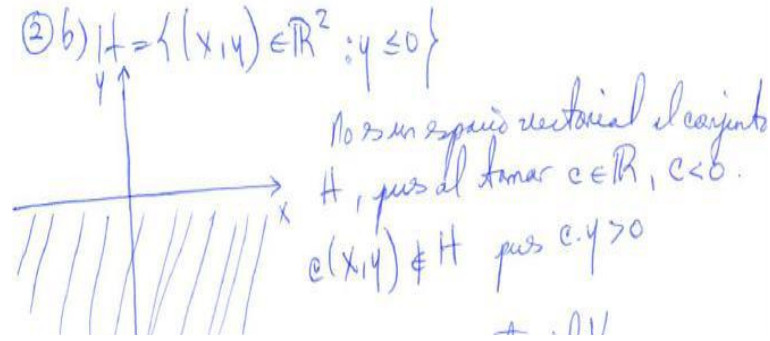 ② b) H = {(x,y) ∈ ℝ² : y ≤ 0}
y
No es un espacio vectorial el conjunto
H, pues al tomar c ∈ ℝ, c < 0.
x
c(x,y) ∉ H pues c.y > 0